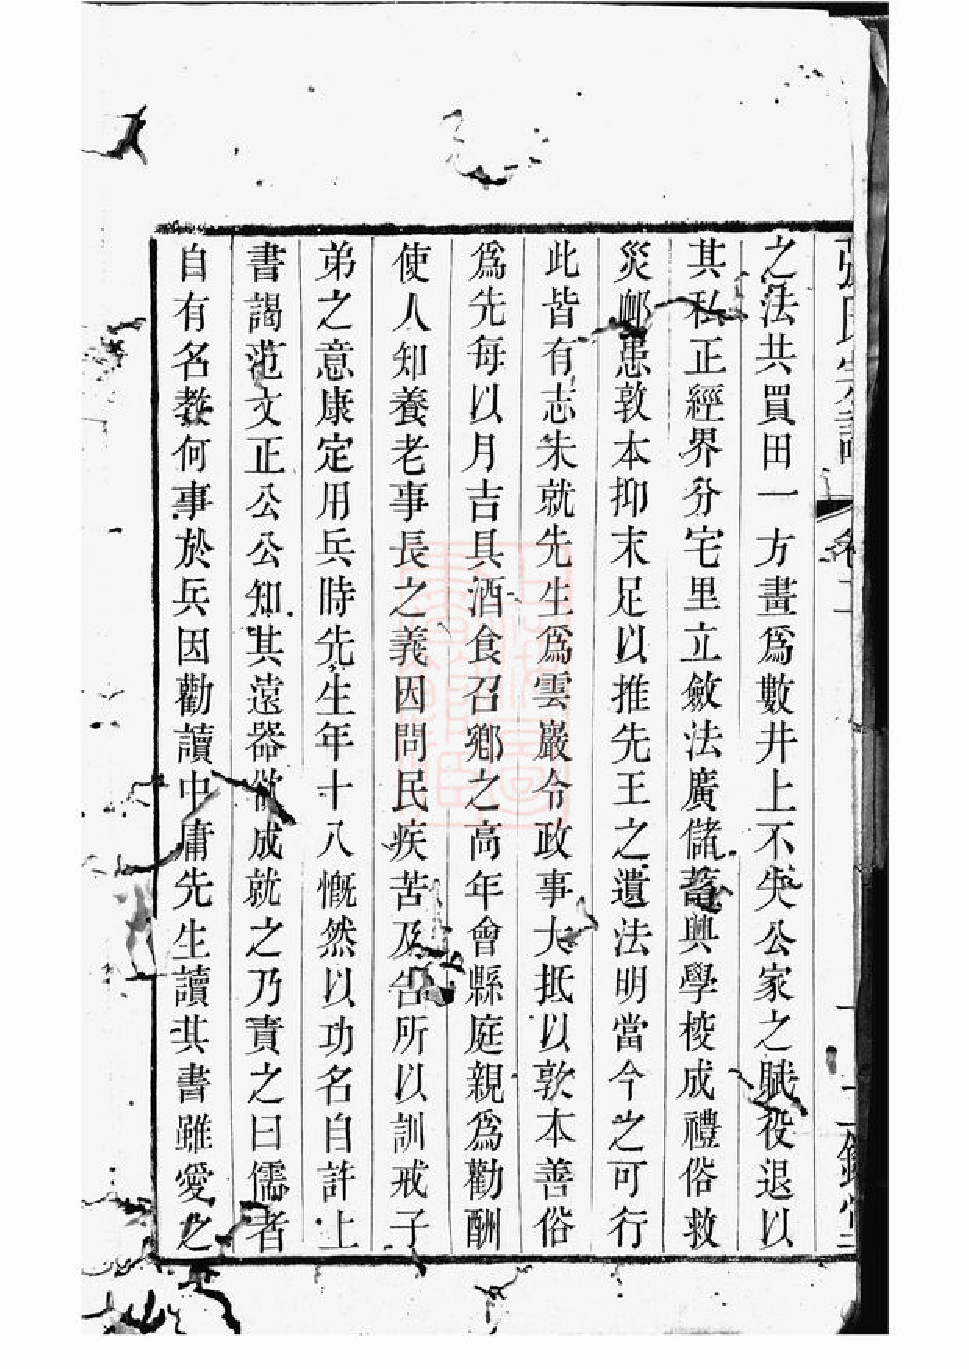 之法共買田一方畫爲數井上不失公家之賦役退以
其私正經界分宅里立斂法廣儲蓄興學校成禮俗救
災卹患敦本抑末足以推先王之遺法明當今之可行
此皆有志未就先生爲雲巖令政事大抵以敦本善俗
爲先每以月吉具酒食召鄉之高年會縣庭親爲勸酬
使人知養老事長之義因問民疾苦及告所以訓戒子
弟之意康定用兵時先生年十八慨然以功名自許上
書謁范文正公公知其遠器欲成就之乃責之曰儒者
自有名教何事於兵因勸讀中庸先生讀其書雖愛之